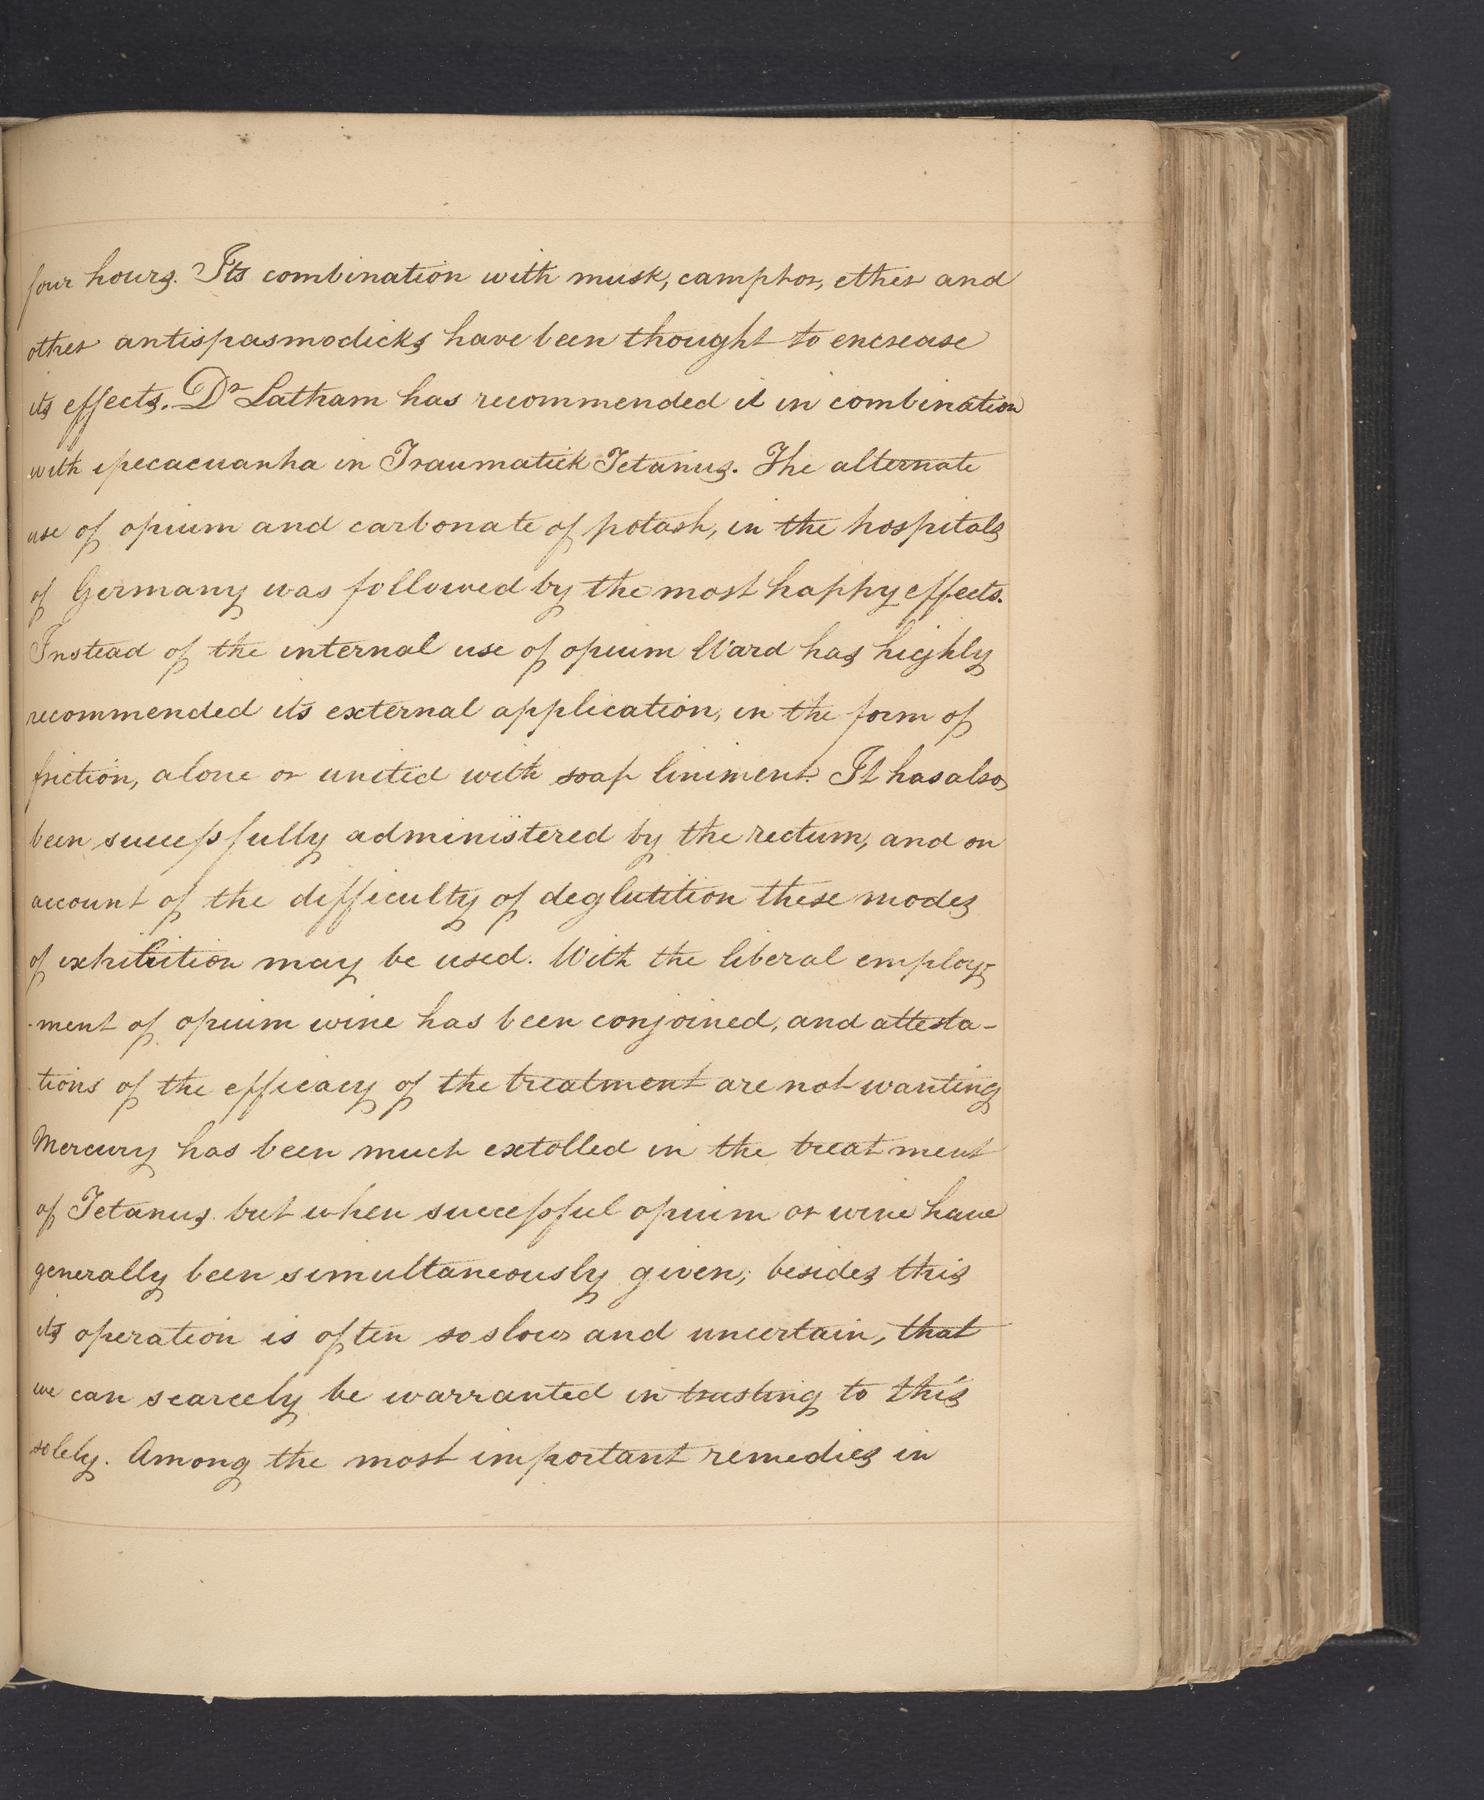 four hours. Its combination with musk, camphor, ether and
other antispasmodicks have been thought to encrease
its effects. Dr Latham has recommended it in combination
with ipecacuanha in Traumatick Tetanus. The alternate
use of opium and carbonate of potash, in the hospitals
of Germany was followed by the most happy effects.
Instead of the internal use of opium Ward has highly
recommended its external application, in the form of
friction, alone or united with soap liniment. It has also
been successfully administered by the rectum, and on
account of the difficulty of deglutition these modes
of exhibition may be used. With the liberal employ-
-ment of opium wine has been conjoined, and attesta-
tions of the efficacy of the treatment are not wanting
Mercury has been much extolled in the treatment
of Tetanus but when successful opium or wine have
generally been simultaneously given; besides this
its operation is often so slow and uncertain, that
we can scarcely be warranted in trusting to this
solely. Among the most important remedies in